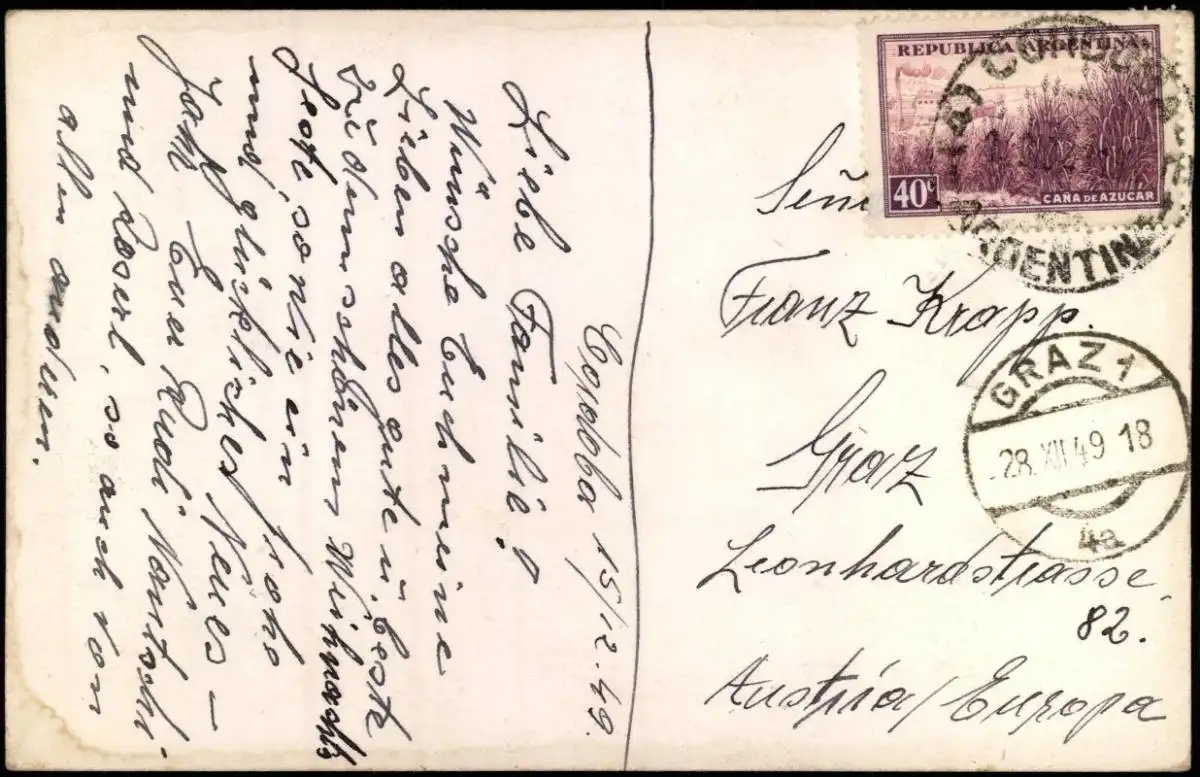 Cordoba 15/12.49.
Liebe Familie!
Wünsche Euch meine
Lieben alles gute u. beste
zu den schönen Weihnachts
Feste, sowie ein frohes
und glückliches Neues –
Jahr Euer Rudi
und Roserl, so auch von
allen anderen.
REPUBLICA ARGENTINA
40c
CAÑA DE AZUCAR
CORDOBA
ARGENTINA
Señ
Franz Krapp.
GRAZ 1
28. XII 49 18
4a
Graz
Leonhardstrasse
82.
Austria/Europa